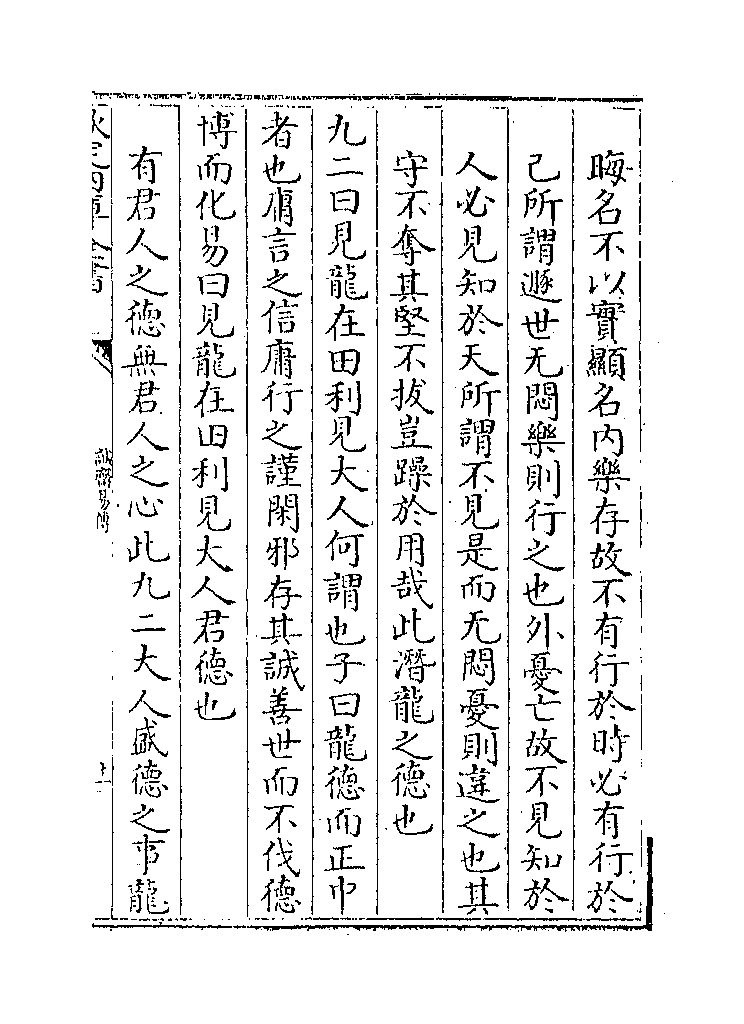 晦名不以實顯名内樂存故不有行於時必有行於
己所謂遯世无悶樂則行之也外憂亡故不見知於
人必見知於天所謂不見是而无悶憂則違之也其
守不奪其堅不拔豈躁於用哉此潛龍之德也
九二曰見龍在田利見大人何謂也子曰龍德而正中
者也庸言之信庸行之謹閑邪存其誠善世而不伐德
博而化易曰見龍在田利見大人君德也
有君人之德無君人之心此九二大人盛德之事龍
欽定四庫全書
誠齋易傳